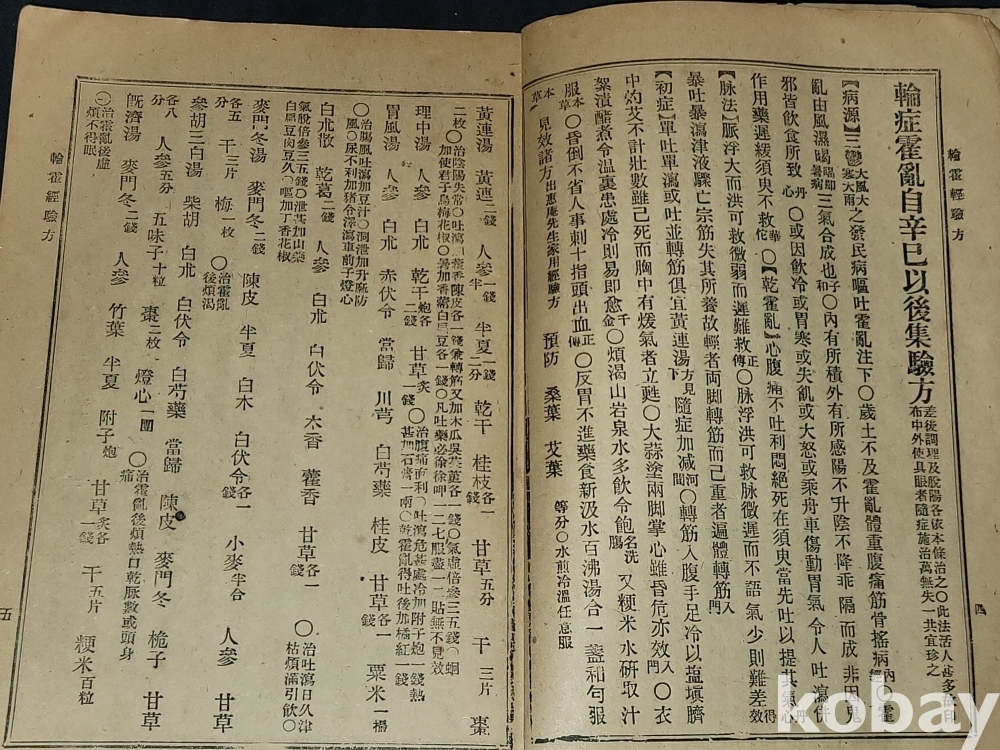 輪症霍亂自辛巳以後集驗方 差後調理及脫陽各依本條治之〇此法活人甚多故印布中外使具眼者隨症施治萬無失一共宜珍之
【病源】三鬱大風大寒大雨之發民病嘔吐霍亂注下〇歲土不及霍亂體重腹痛筋骨搖病內經〇霍
亂由風濕暍暍即暑病三氣合成也子和〇內有所積外有所感陽不升陰不降乖隔而成非因鬼
邪皆飮食所致丹心〇或因飮冷或胃寒或失飢或大怒或乘舟車傷動胃氣令人吐瀉併
作用藥遲緩須臾不救華佗〇【乾霍亂】心腹痛不吐利悶絕死在須臾當先吐以提其氣丹心
【脉法】脈浮大而洪可救微弱而遲難救正傳〇脉浮洪可救脉微遲而不語氣少則難差得效
暴吐暴瀉津液驟亡宗筋失其所養故輕者両脚轉筋而已重者遍體轉筋入門
【初症】單吐單瀉或吐並轉筋俱宜黃連湯方見下隨症加減河間〇轉筋入腹手足冷以塩塡臍
中灼艾不計壯數雖已死而胸中有煖氣者立甦〇大蒜塗兩脚掌心雖昏危亦效入門〇衣
絮漬醋煮令温裹患處冷則易即愈千金〇煩渴山岩泉水多飮令飽名洗膓又粳米水硏取汁
服本草〇昏倒不省人事刺十指頭出血正傳〇反胃不進藥食新汲水百沸湯合一盞和勻服
本草 見效諸方 出惠庵先生家用經驗方 預防 桑葉 艾葉 等分〇水煎冷溫任意服
輪霍經驗方
四
黃連湯 黃連二錢 人參一錢半 半夏一錢二分 乾干 桂枝各一錢 甘草五分 干三片 棗
二枚〇治陰陽失常〇吐瀉
理中湯 人參 白朮 乾干炮各二錢 甘草炙一錢
胃風湯 人參 白朮 赤伏令 當歸 川芎 白芍藥 桂皮 甘草各一錢 粟米一撮
〇治腸風吐瀉加豆汁〇洞泄加升麻防風〇尿不利加猪令澤瀉車前子燈心
白朮散 乾葛二錢 人參 白朮 白伏令 木香 藿香 甘草各一錢 〇治吐瀉日久津枯煩滿引飮〇
氣脫倍參三五錢〇泄甚加山藥白扁豆肉豆久〇嘔加丁香花椒
麥門冬湯 麥門冬二錢 陳皮 半夏 白朮 白伏令各一錢 小麥半合 人參 甘草
各五分 干三片 梅一枚 〇治霍亂後煩渴
參胡三白湯 柴胡 白朮 白伏令 白芍藥 當歸 陳皮 麥門冬 梔子 甘草
各八分 人參五分 五味子十粒 棗二枚 燈心一團 〇治霍亂後煩熱口乾脈數或頭身痛
旣濟湯 麥門冬二錢 人參 竹葉 半夏 附子炮 甘草炙各一錢 干五片 粳米百粒
〇治霍亂後虛煩不得眠
輪霍經驗方
五
kobay